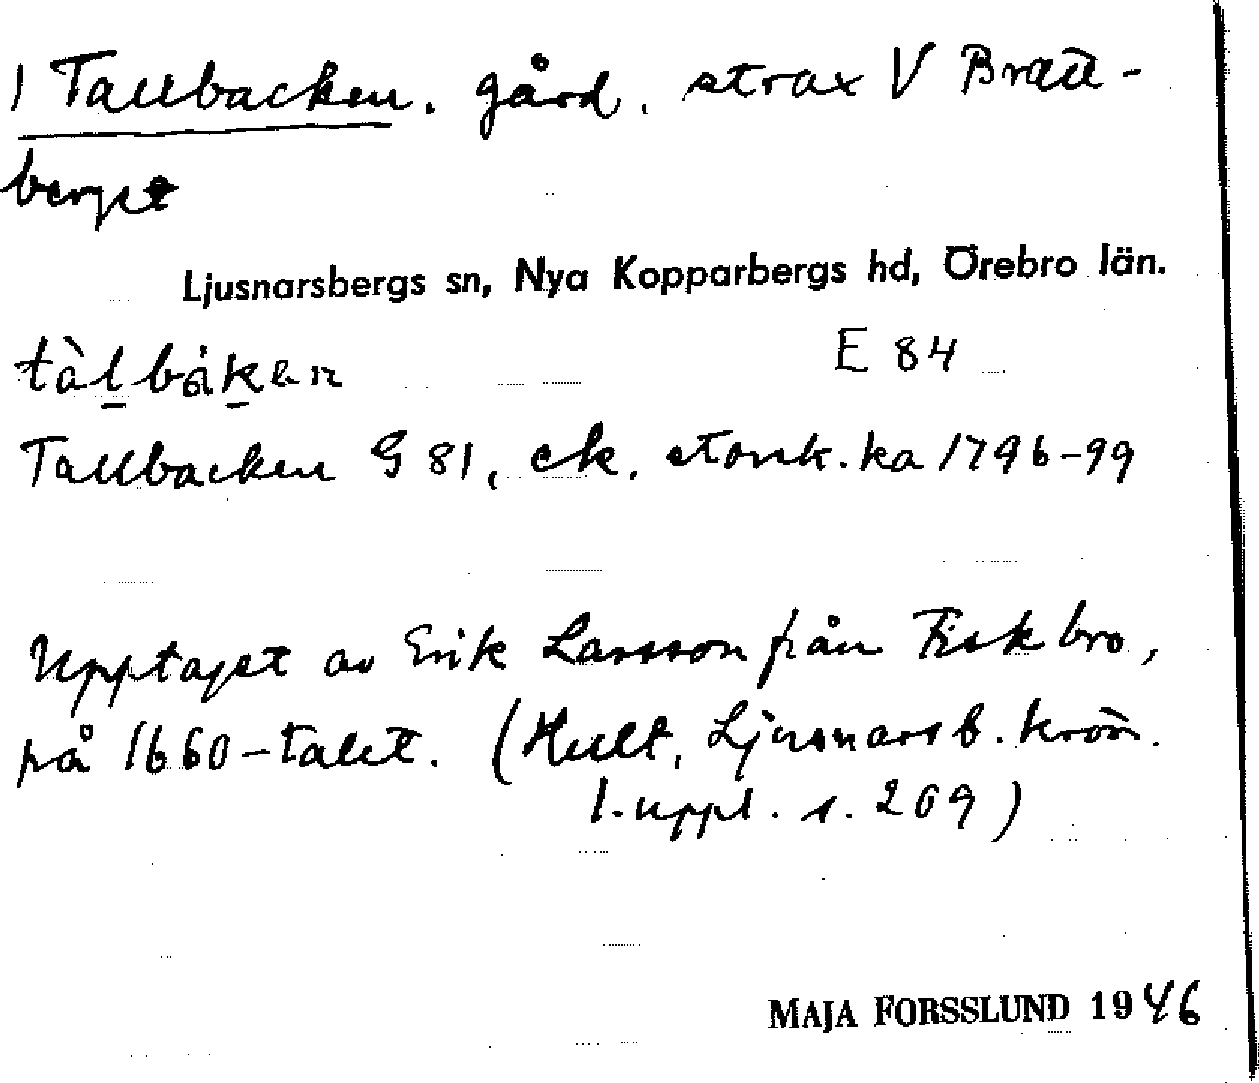 1 Tallbacken. gård. strax V Bratt-
berget
Ljusnarsbergs sn, Nya Kopparbergs hd, Örebro län.
tàlbàken E 84
Tallbacken G 81, ek. stork. ka 1796-99
Upptaget av Erik Larsson från Fiskbro,
på 1660-talet. (Hult, Ljusnarsb. krön.
1. uppl. s. 209)
MAJA FORSSLUND 1946